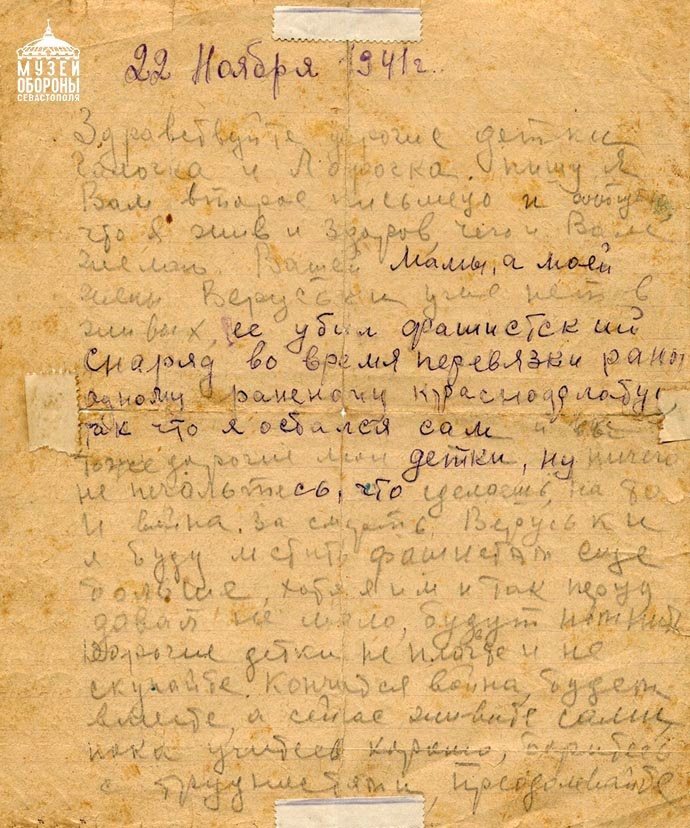 МУЗЕЙ
ОБОРОНЫ
СЕВАСТОПОЛЯ
22 Ноября 1941г.
Здравствуйте дорогие детки
Галочка и Лороска. пишу я
Вам второе письмецо и
что я жив и здоров, чего и Вам
желаю. Вашей мамы, а моей
жены Веруськи уже нет в
живых, ее убил фашистский
снаряд во время перевязки раны
одному раненому красноармейцу
так что я остался сам и вы
тоже дорогие мои детки, ну ничего
не печальтесь, что сделаешь, на то
и война. За смерть Веруськи
я буду мстить фашистам еще
больше, хотя я им и так перцу
давал не мало, будут помнить
Дорогие детки не плачьте и не
скучайте. Кончится война, будем
вместе, а сейчас живите сами,
пока учитесь хорошо, боритесь
с трудностями, преодолевайте